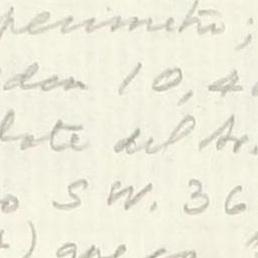 perimetro;
den 10,4
lote del Sr.
o SW. 36
) que